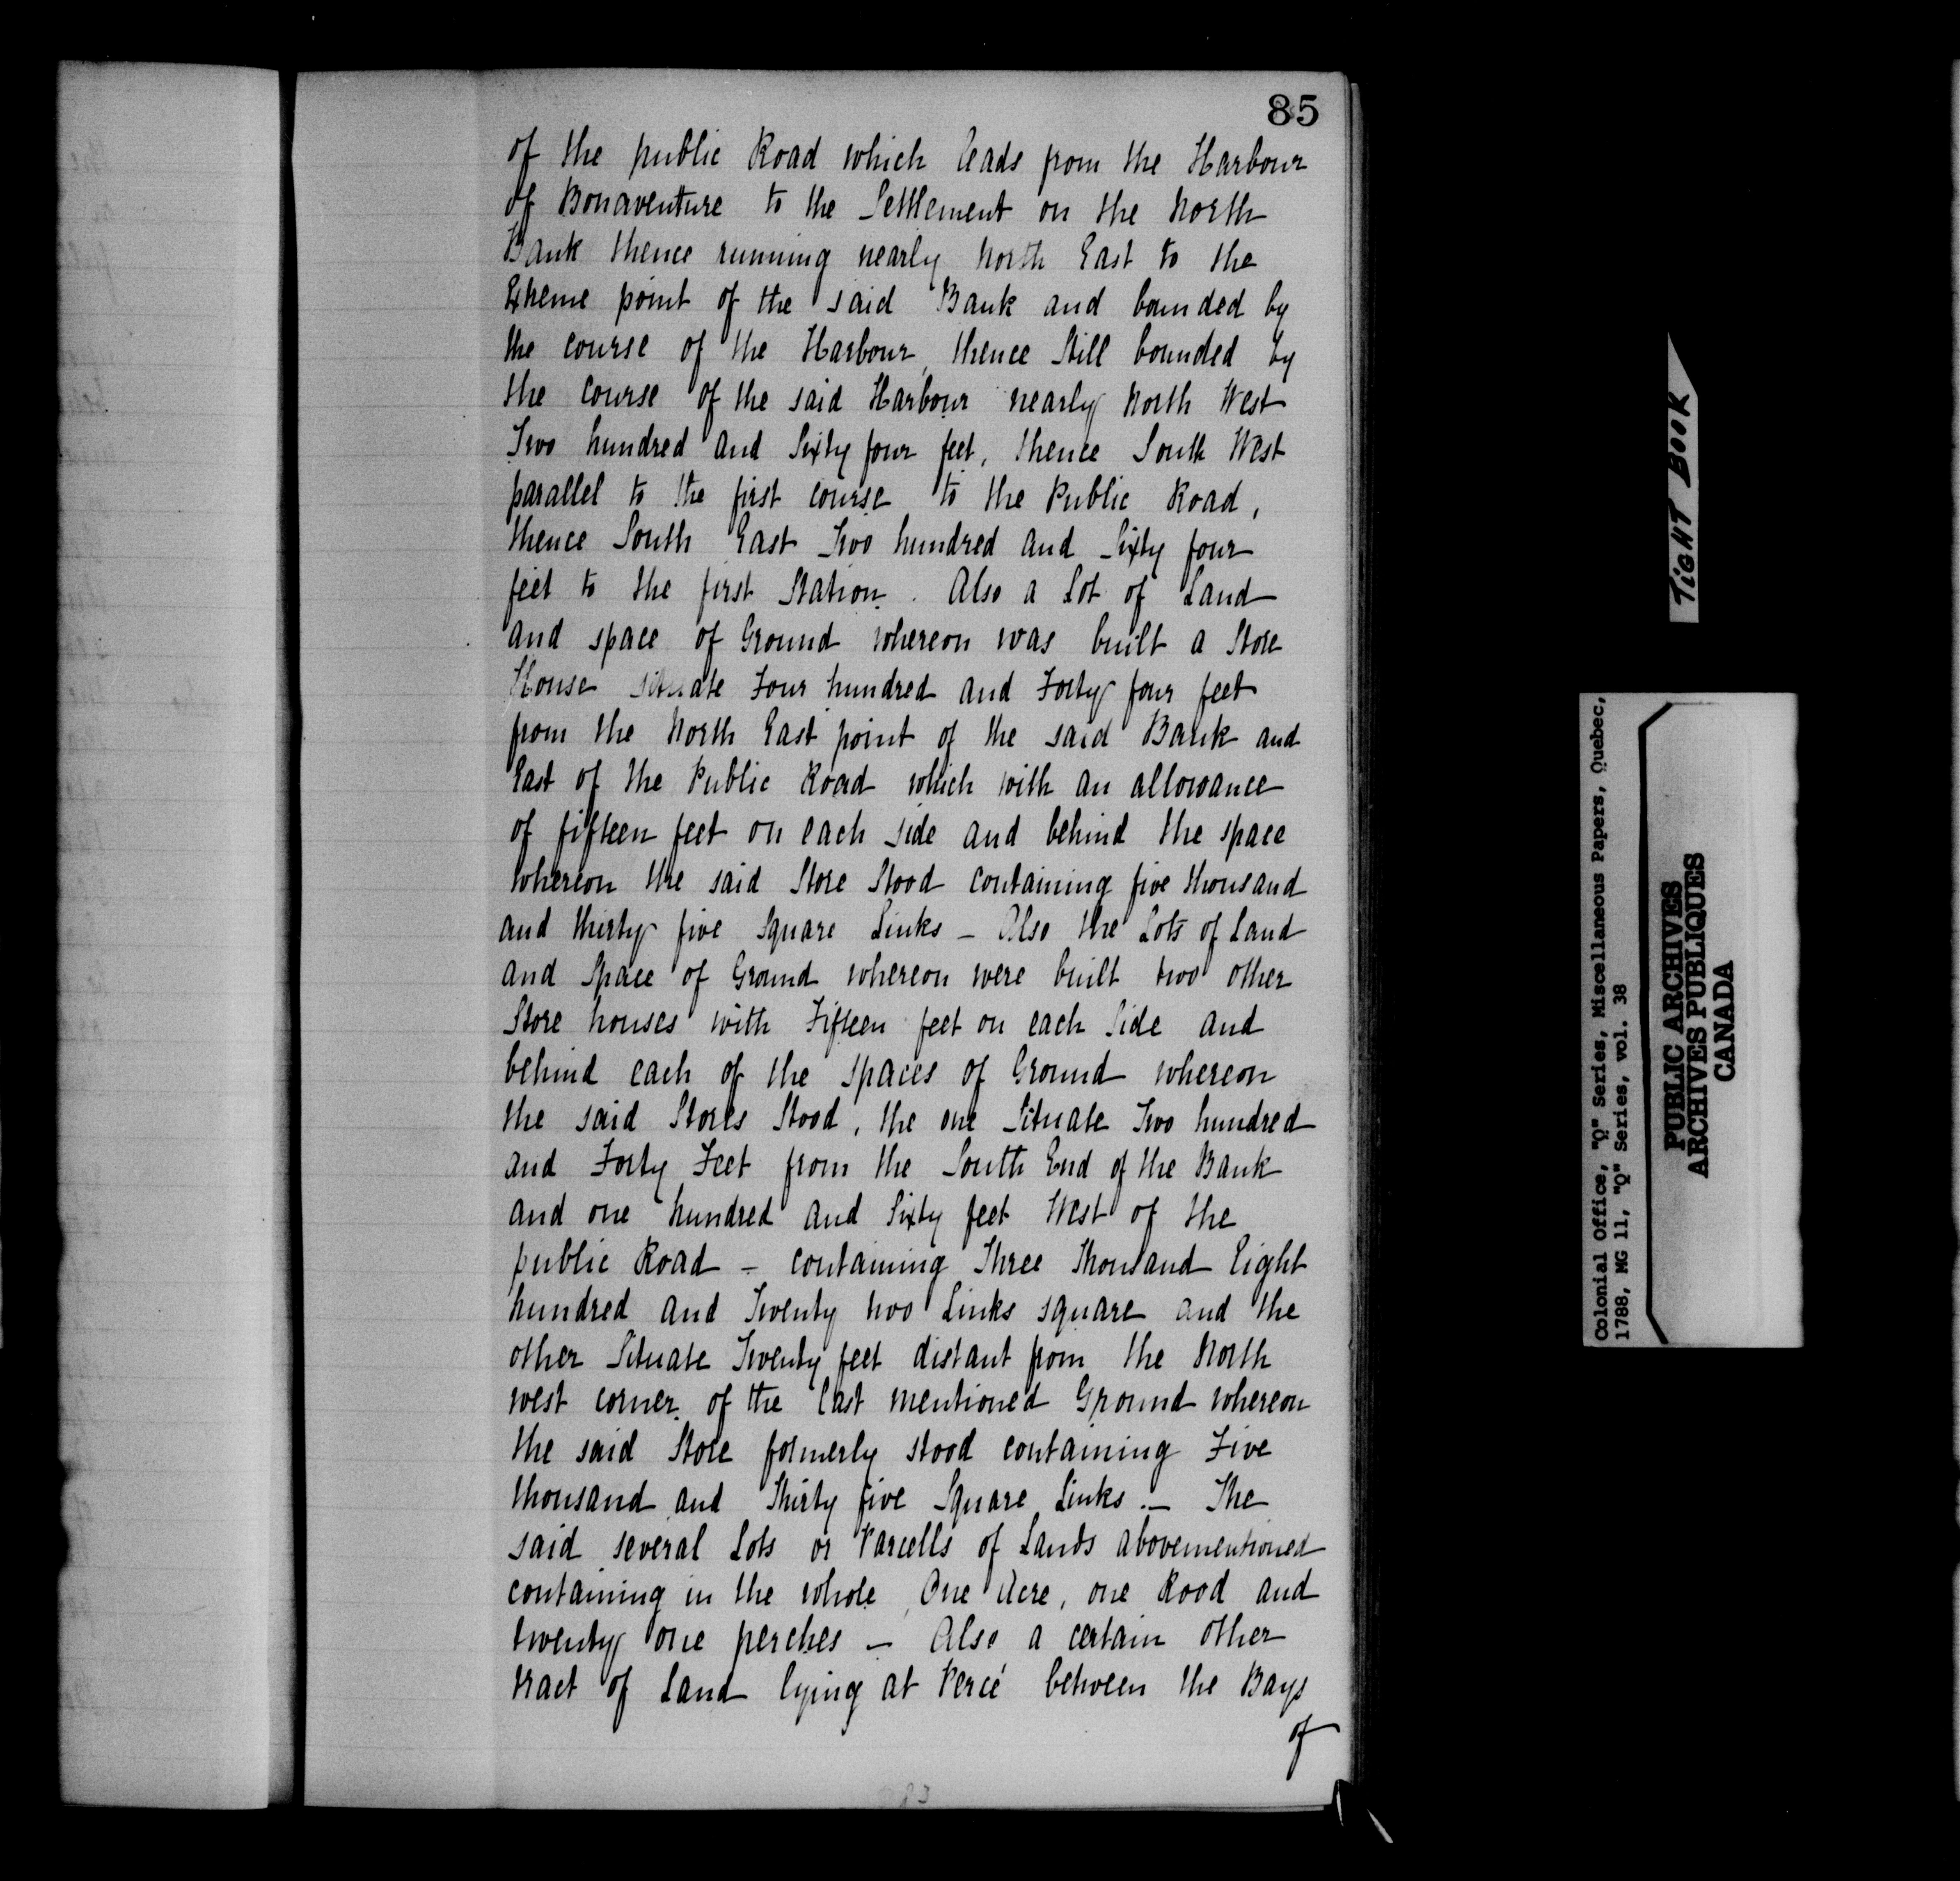 85
of the public Road which leads from the Harbour
of Bonaventure to the Settlement on the North
Bank thence running nearly North East to the
Extreme point of the said Bank and bounded by
the course of the Harbour, thence Still bounded by
the Course of the said Harbour nearly North West
Two hundred and Sixty four feet, thence South West
parallel to the first course to the Public Road,
thence South East Two hundred and Sixty four
feet to the first Station. Also a Lot of Land
and space of Ground whereon was built a Store
House situate Four hundred and Forty four feet
from the North East point of the said Bank and
East of the Public Road which with an allowance
of fifteen feet on each side and behind the space
whereon the said Store Stood containing five thousand
and thirty five square Links – Also the Lots of Land
and Space of Ground whereon were built two other
Store houses with Fifteen feet on each Side and
behind each of the spaces of Ground whereon
the said Stores Stood, the one Situate Two hundred
and Forty Feet from the South End of the Bank
and one hundred and Sixty feet West of the
public Road – containing Three Thousand Eight
hundred and Twenty two Links square and the
other Situate Twenty feet distant from the North
west corner of the last mentioned Ground whereon
the said Store formerly stood containing Five
thousand and Thirty five Square Links. – The
said several Lots or Parcells of Lands abovementioned
containing in the whole, One Acre, one Rood and
twenty one perches – Also a certain other
tract of Land lying at Percé between the Bays
of
TIGHT BOOK
Colonial Office, "Q" Series, Miscellaneous Papers, Quebec,
1788, MG 11, "Q" Series, vol. 38
PUBLIC ARCHIVES
ARCHIVES PUBLIQUES
CANADA